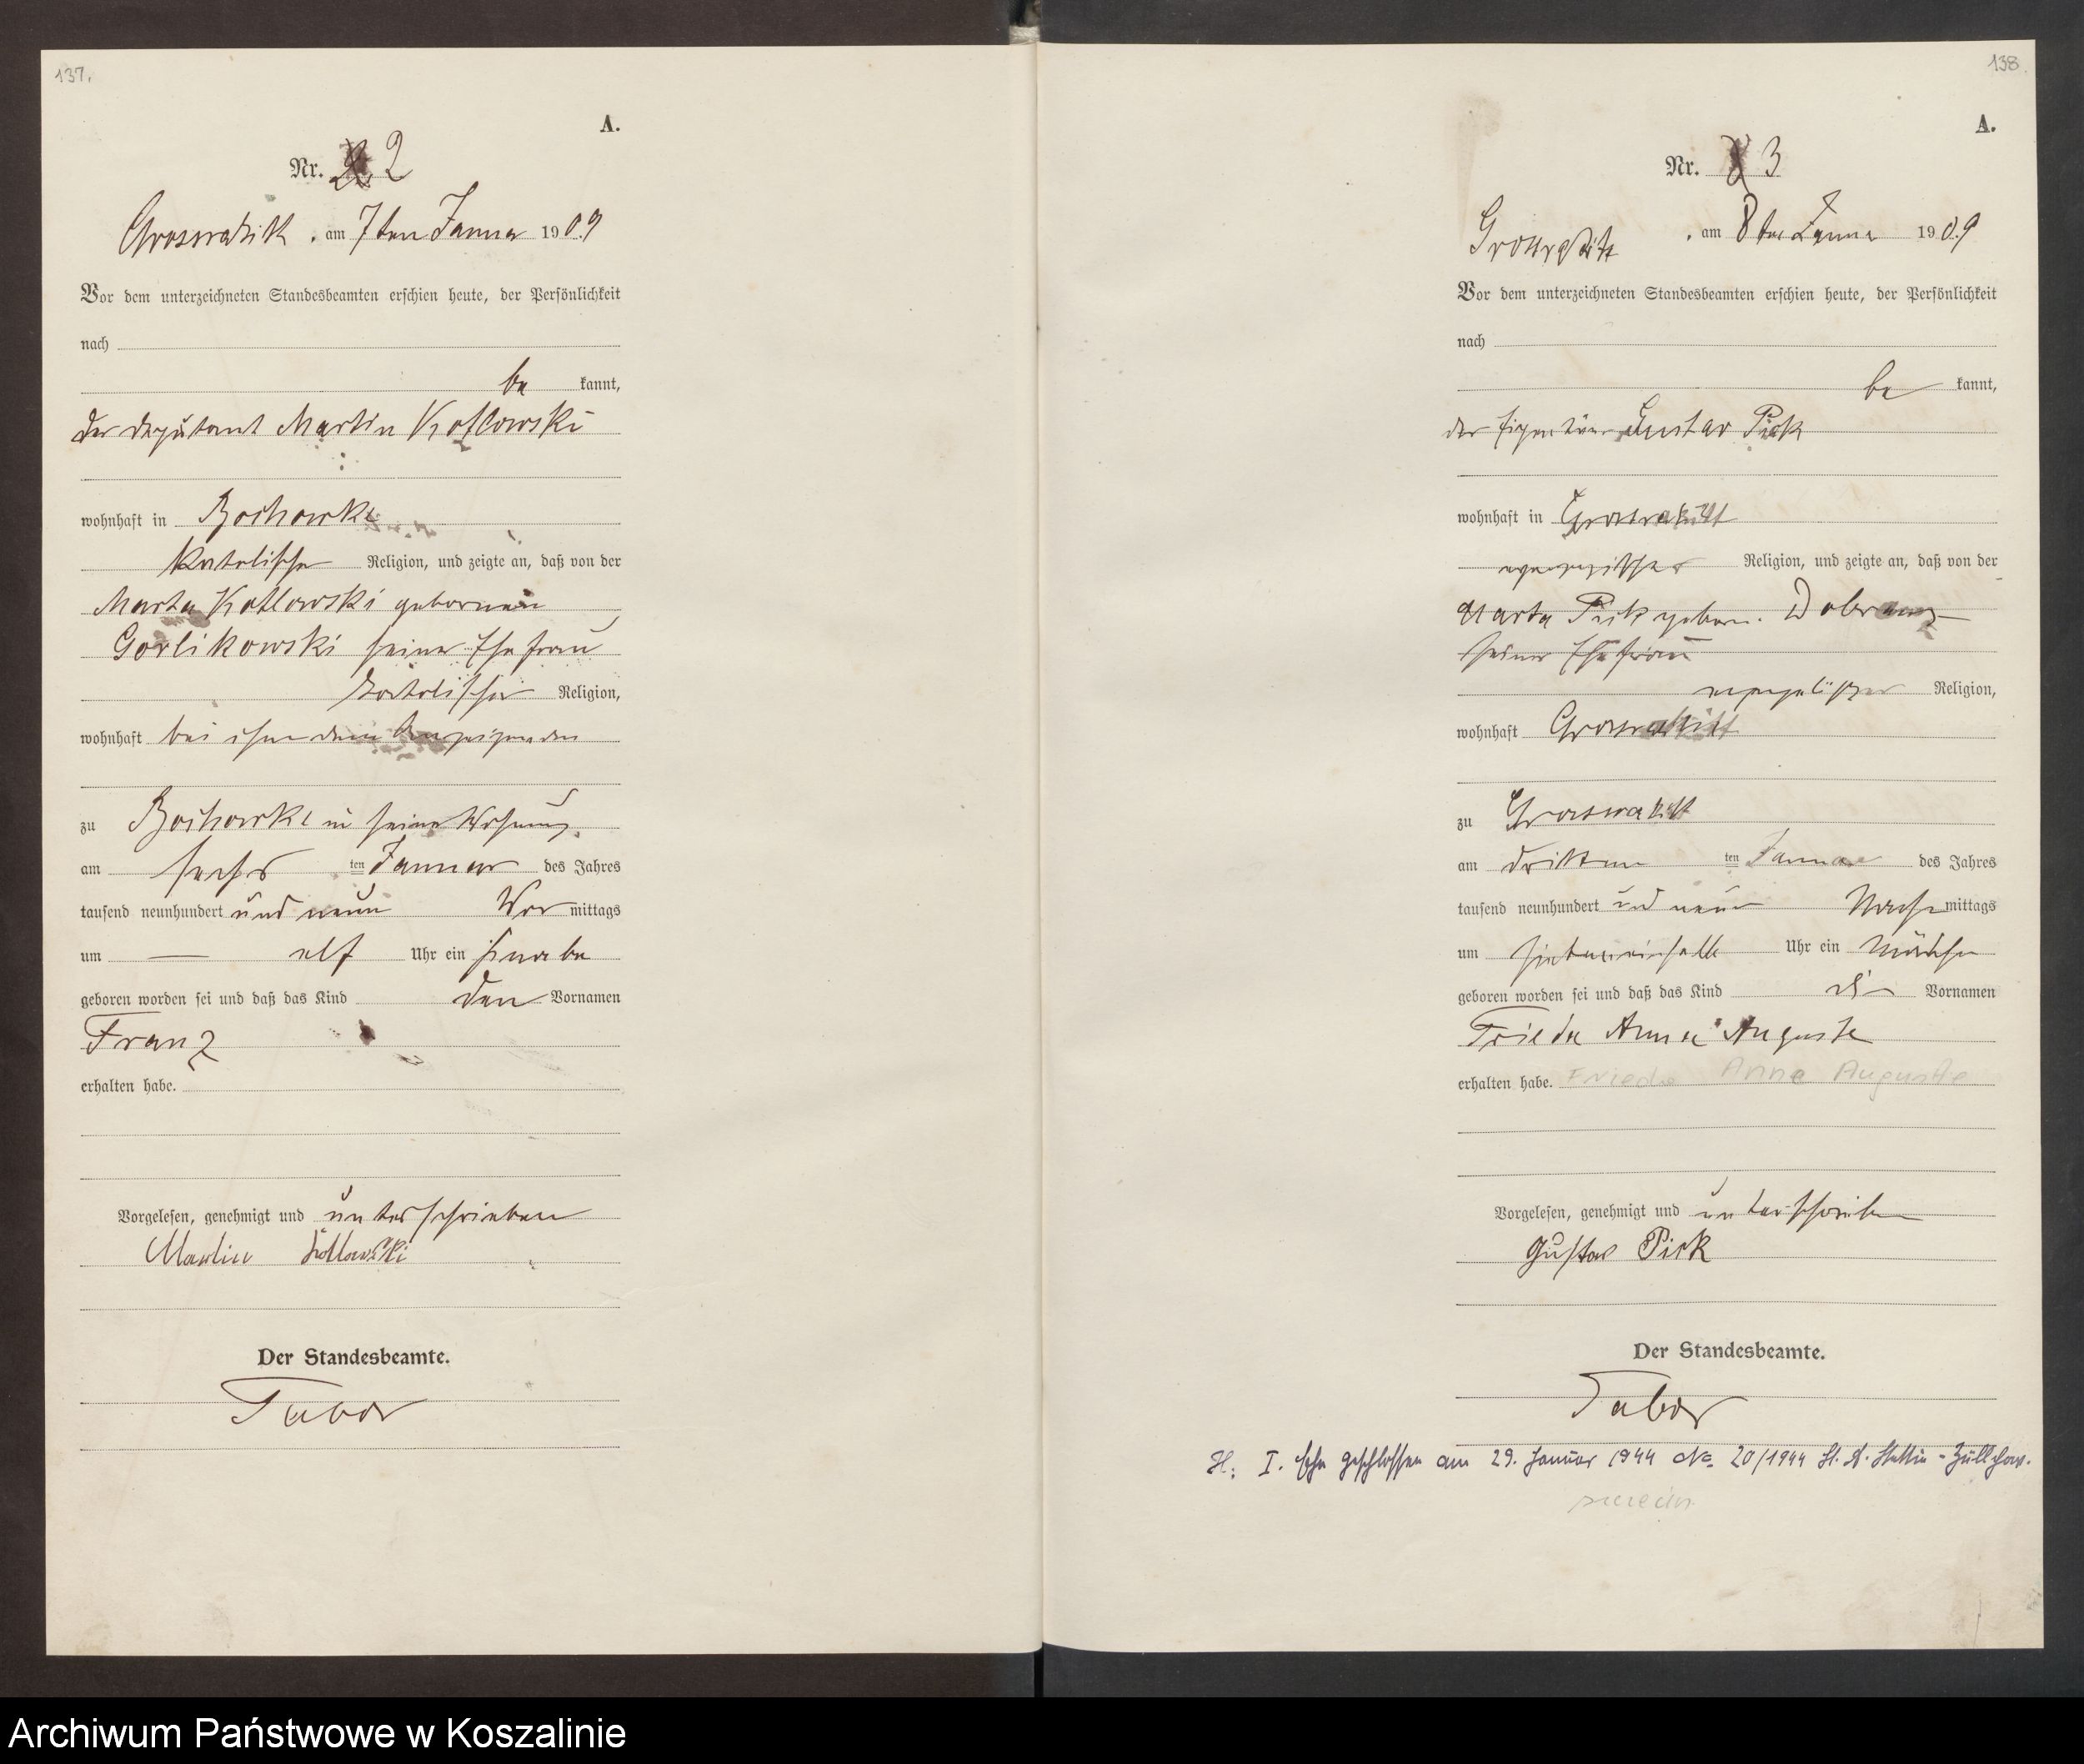 137.
A.
Nr. 2
Grossrakitt, am 7ten Januar 1909
Vor dem unterzeichneten Standesbeamten erschien heute, der Persönlichkeit
nach
be kannt,
der Deputant Martin Kotlowski
wohnhaft in Bochowke
Katolischer Religion, und zeigte an, daß von der
Marta Kotlowski geborenen
Gorlikowski seiner Ehefrau
katolischer Religion,
wohnhaft bei ihm dem Anzeigenden
zu Bochowke in seine Wohnung
am sechs ten Januar des Jahres
tausend neunhundert und neun Vor mittags
um — elf Uhr ein Knabe
geboren worden sei und daß das Kind den Vornamen
Franz
erhalten habe.
Vorgelesen, genehmigt und unterschrieben
Martin Kotlowski
Der Standesbeamte.
Tabor
138
A.
Nr. 3
Grossrakitt, am 8ten Januar 1909
Vor dem unterzeichneten Standesbeamten erschien heute, der Persönlichkeit
nach
be kannt,
der Eigentümer Gustav Pick
wohnhaft in Grossrakitt
evangelischer Religion, und zeigte an, daß von der
Marta Pick geborn.
seiner Ehefrau
evangelischer Religion,
wohnhaft Grossrakitt
zu Grossrakitt
am dritten ten Januar des Jahres
tausend neunhundert und neun Nach mittags
um siebeneinhalb Uhr ein Mädchen
geboren worden sei und daß das Kind die Vornamen
Frieda Anna Auguste
erhalten habe. Frieda Anna Auguste
Vorgelesen, genehmigt und unterschrieben
Gustav Pick
Der Standesbeamte.
Tabor
H: I. Ehe geschlossen am 29. Januar 1944 No 20/1944 St. A. Stettin-Züllchow.
Szczecin
Archiwum Państwowe w Koszalinie